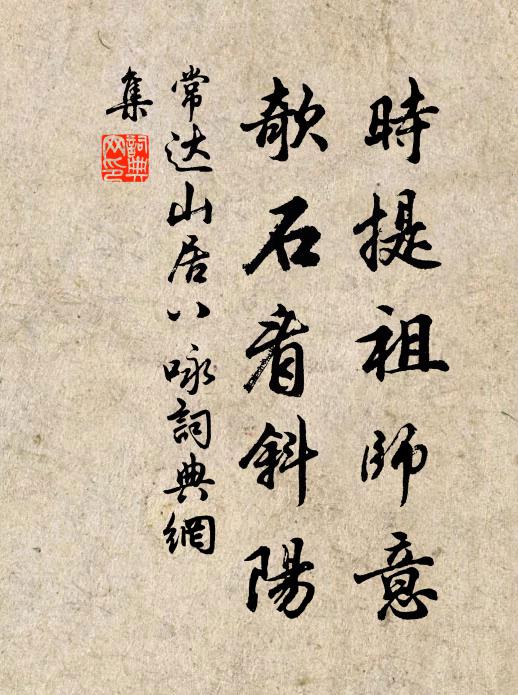 時提祖師意
欹石看斜陽
常达山居八咏詞典網
集
詞典網印